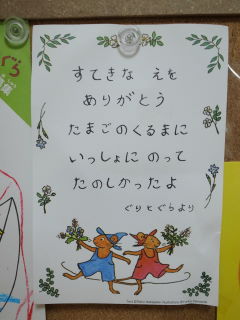 ぐら
すてきな えを
ありがとう
たまごのくるまに
いっしょに のって
たのしかったよ
ぐりとぐらより